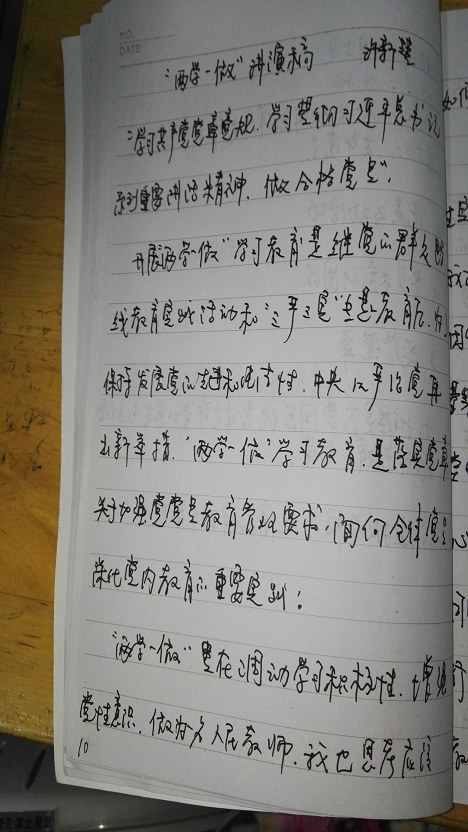 NO.
DATE
"两学一做"讲演稿 许新强
"学习共产党党章党规、学习贯彻习近平总书记
系列重要讲话精神、做合格党员"。
开展"两学一做"学习教育是继党的群众路
线教育实践活动和"三严三实"专题教育后,为
保持发展党的先进和纯洁性,中央从严治党再
出新举措。"两学一做"学习教育,是落实党章
关于加强党员教育管理要求、面向全体党员
深化党内教育的重要实践:
"两学一做"贵在调动学习积极性,增强
党性意识。做为人民教师,我也思考应该
10